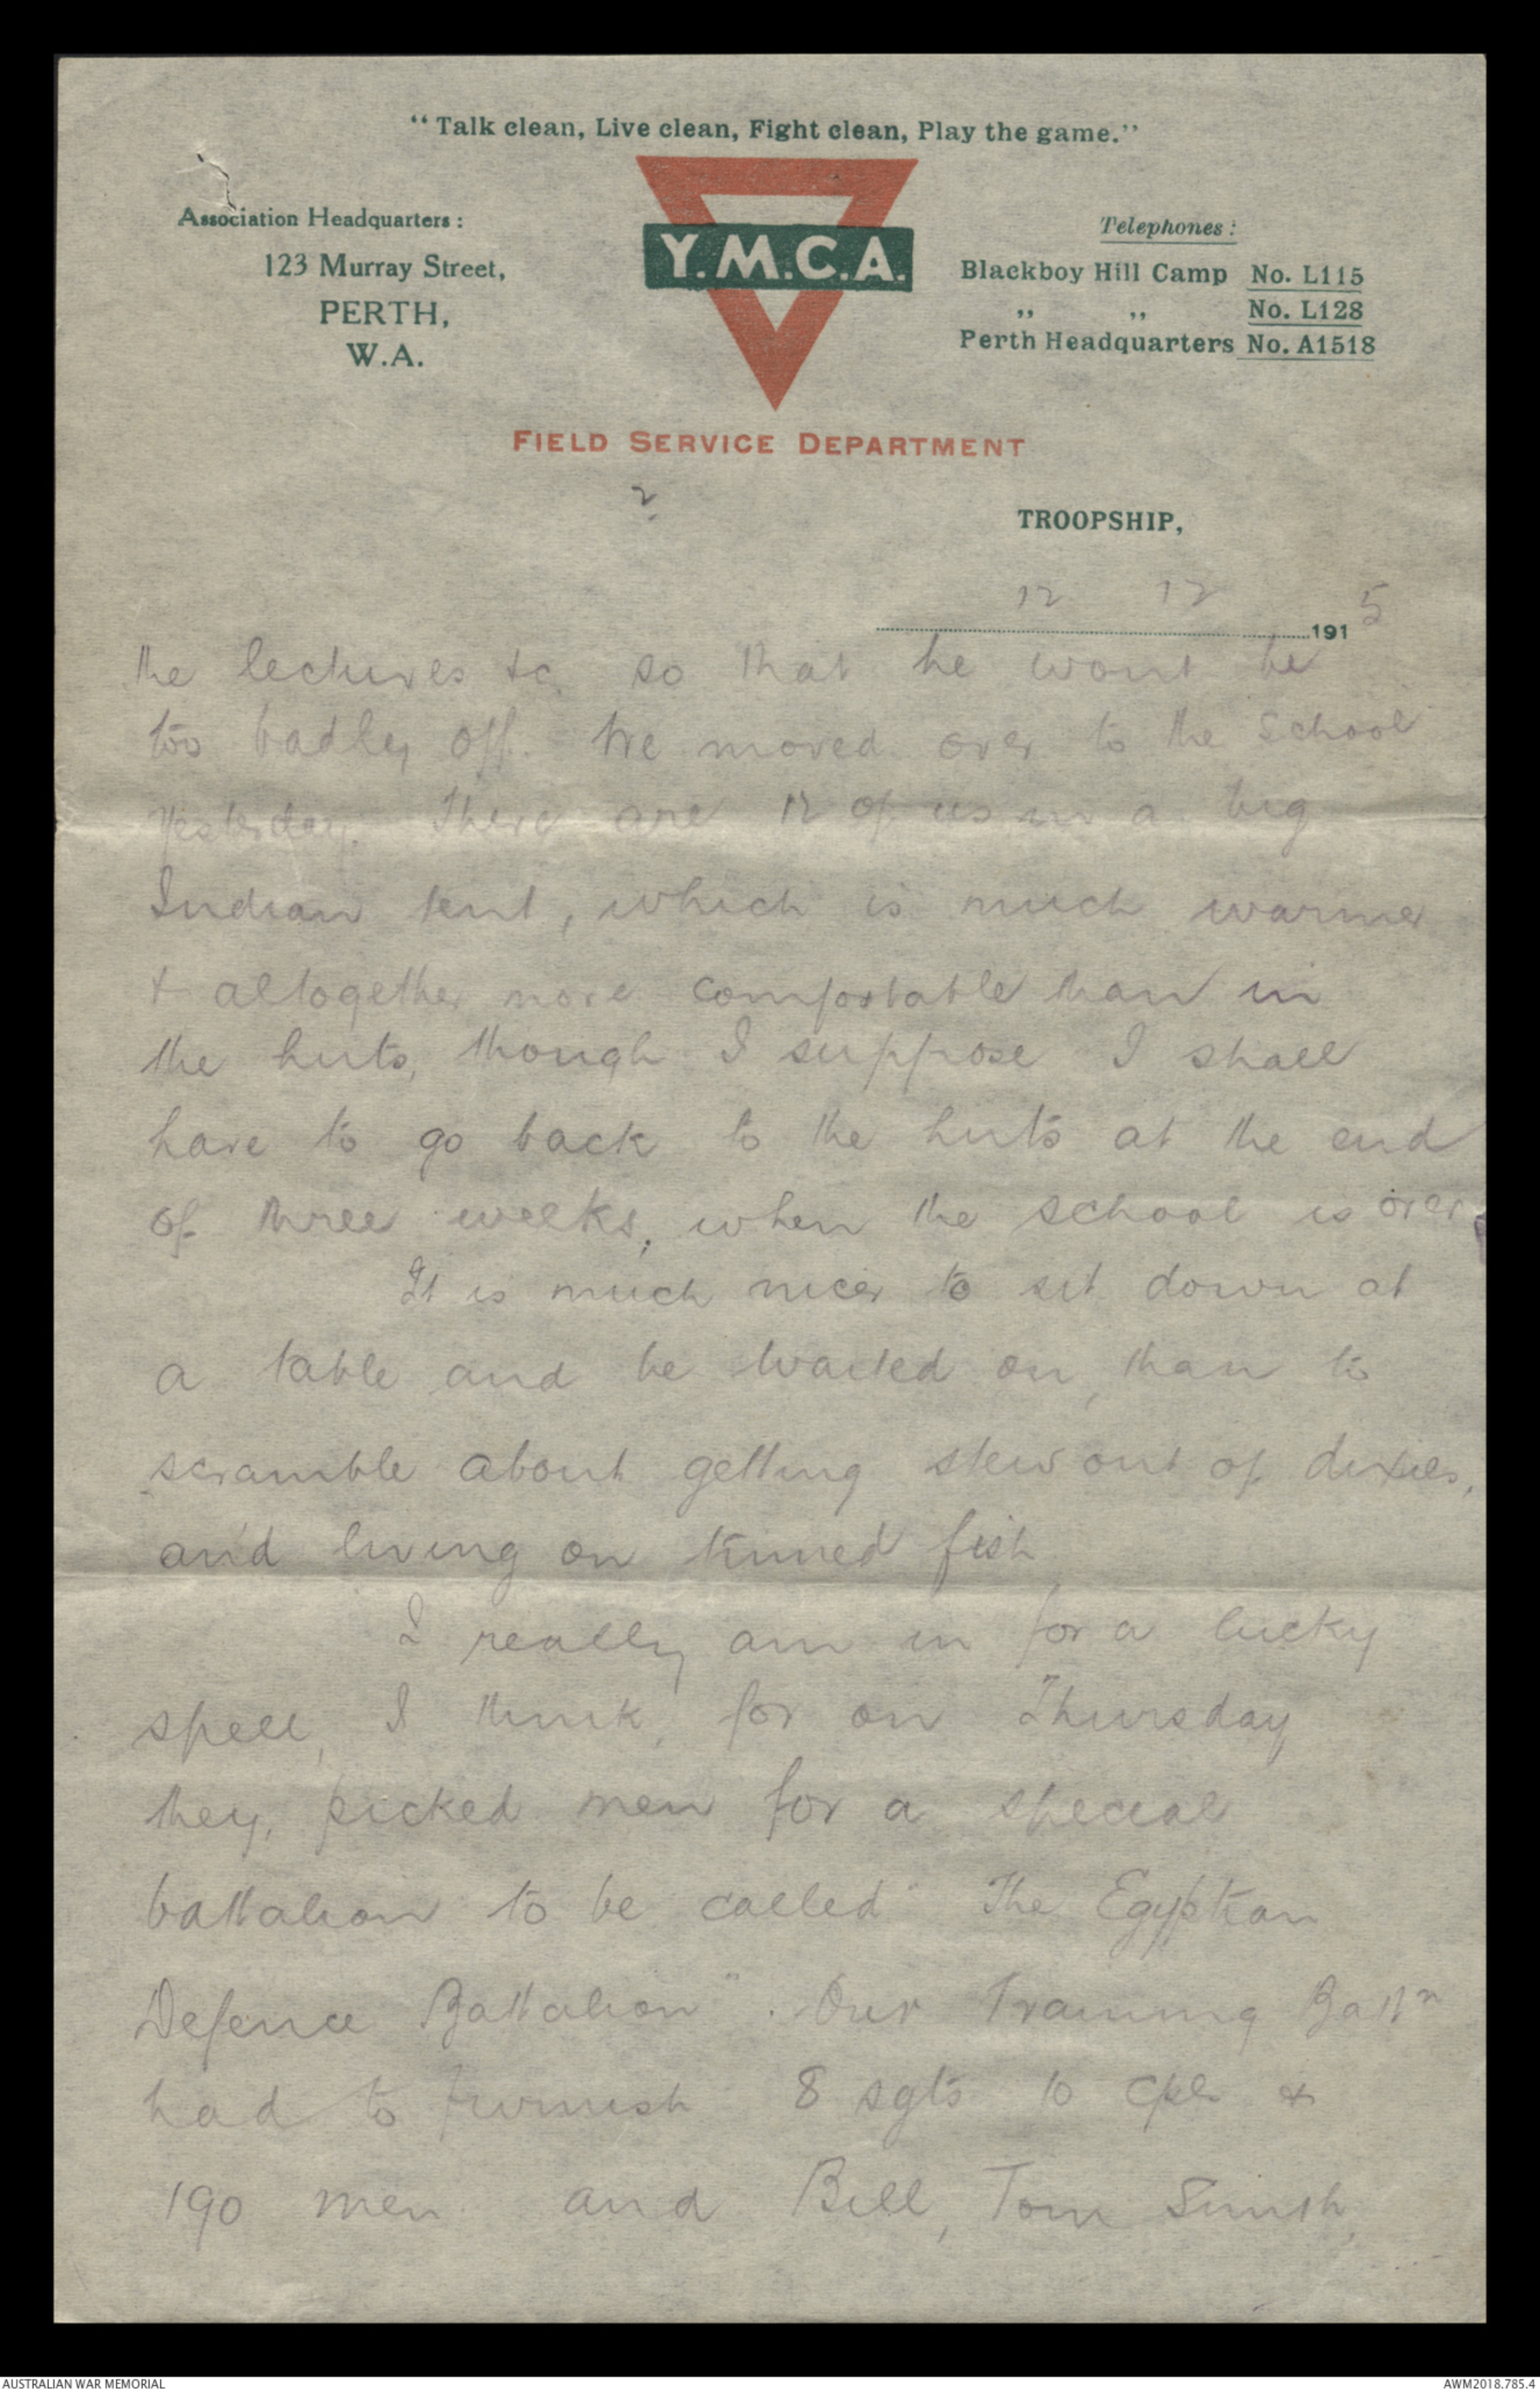 “Talk clean, Live clean, Fight clean, Play the game.”
Association Headquarters:
123 Murray Street,
PERTH,
W.A.
Y.M.C.A.
Telephones:
Blackboy Hill Camp No. L115
„ „ No. L128
Perth Headquarters No. A1518
FIELD SERVICE DEPARTMENT
2
TROOPSHIP,
12 12 1915
the lectures &c so that he wont be
too badly off. We moved over to the School
yesterday. There are 12 of us in a big
Indian tent, which is much warmer
& altogether more comfortable than in
the huts, though I suppose I shall
have to go back to the huts at the end
of three weeks, when the school is over.
It is much nicer to sit down at
a table and be waited on, than to
scramble about getting stew out of dixies,
and living on tinned fish
I really am in for a lucky
spell, I think, for on Thursday
they, picked men for a special
battalion to be called "The Egyptian
Defence Battalion". Our Training Battn
had to furnish 8 sgts 10 cpls &
190 men and Bill, Tom Smith,
AUSTRALIAN WAR MEMORIAL
AWM2018.785.4